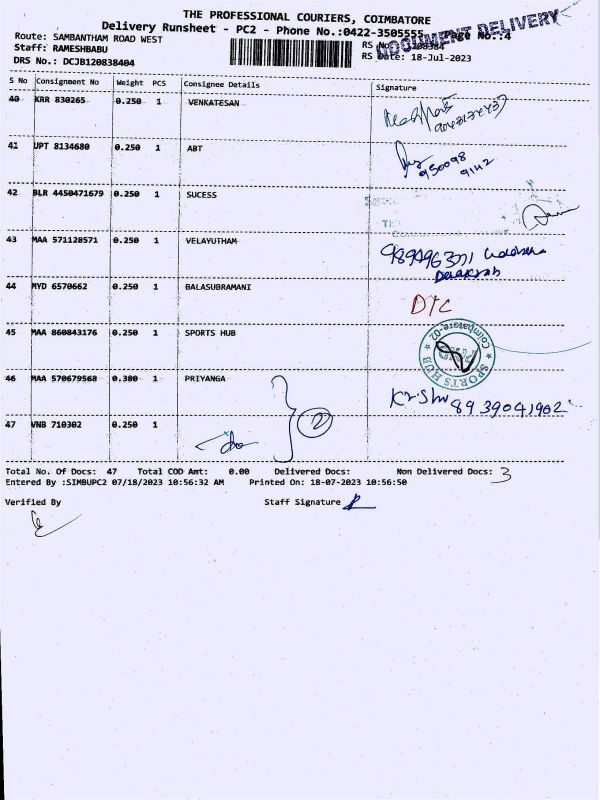 THE PROFESSIONAL COURIERS, COIMBATORE
Delivery Runsheet - PC2 - Phone No.:0422-3505555 Page No.:4
DOCUMENT DELIVERY
Route: SAMBANTHAM ROAD WEST
RS No
Staff: RAMESHBABU
RS Date: 18-Jul-2023
DRS No.: DCJB120838404
S No Consignment No Weight PCS Consignee Details Signature
40 KRR 830265 0.250 1 VENKATESAN
41 UPT 8134680 0.250 1 ABT
950098
9142
42 BLR 4450471679 0.250 1 SUCESS
43 MAA 571128571 0.250 1 VELAYUTHAM
44 MYD 6570662 0.250 1 BALASUBRAMANI
DTC
45 MAA 860843176 0.250 1 SPORTS HUB
SPORTS HUB Coimbatore-02
46 MAA 570679568 0.380 1 PRIYANGA
8939041902
47 VNB 710302 0.250 1
2
Total No. Of Docs: 47 Total COD Amt: 0.00 Delivered Docs: Non Delivered Docs: 3
Entered By :SIMBUPC2 07/18/2023 10:56:32 AM Printed On: 18-07-2023 10:56:50
Verified By Staff Signature